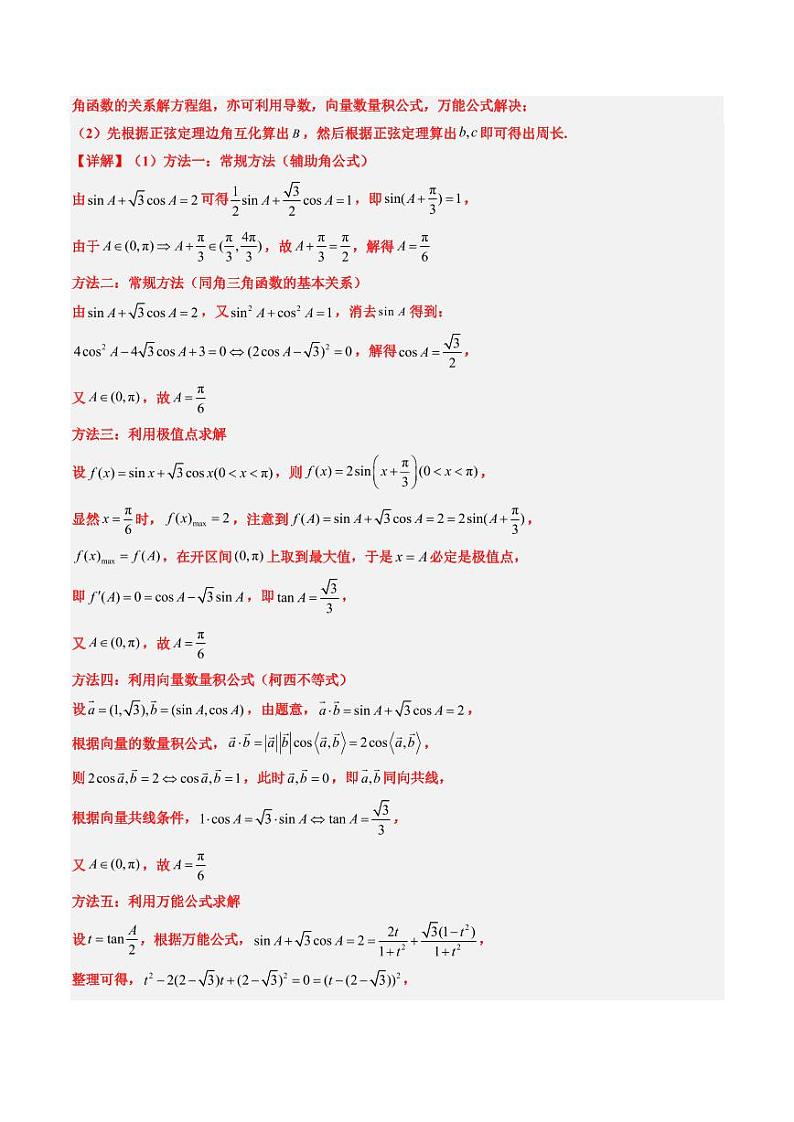 角函数的关系解方程组，亦可利用导数，向量数量积公式，万能公式解决；
（2）先根据正弦定理边角互化算出 B ，然后根据正弦定理算出 b, c 即可得出周长.
【详解】（1）方法一：常规方法（辅助角公式）
由 sin A + √3 cos A = 2 可得 1/2 sin A + √3/2 cos A = 1 ，即 sin(A + π/3) = 1 ，
由于 A ∈ (0, π) ⇒ A + π/3 ∈ (π/3, 4π/3) ，故 A + π/3 = π/2 ，解得 A = π/6
方法二：常规方法（同角三角函数的基本关系）
由 sin A + √3 cos A = 2 ，又 sin² A + cos² A = 1 ，消去 sin A 得到：
4cos² A − 4√3 cos A + 3 = 0 ⇔ (2cos A − √3)² = 0 ，解得 cos A = √3/2 ，
又 A ∈ (0, π) ，故 A = π/6
方法三：利用极值点求解
设 f(x) = sin x + √3 cos x(0 < x < π) ，则 f(x) = 2sin(x + π/3)(0 < x < π) ，
显然 x = π/6 时， f(x)max = 2 ，注意到 f(A) = sin A + √3 cos A = 2 = 2sin(A + π/3) ，
f(x)max = f(A) ，在开区间 (0, π) 上取到最大值，于是 x = A 必定是极值点，
即 f′(A) = 0 = cos A − √3 sin A ，即 tan A = √3/3 ，
又 A ∈ (0, π) ，故 A = π/6
方法四：利用向量数量积公式（柯西不等式）
设 a⃗ = (1, √3), b⃗ = (sin A, cos A) ，由题意， a⃗ · b⃗ = sin A + √3 cos A = 2 ，
根据向量的数量积公式， a⃗ · b⃗ = |a⃗||b⃗| cos⟨a⃗, b⃗⟩ = 2cos⟨a⃗, b⃗⟩ ，
则 2cos a⃗, b⃗ = 2 ⇔ cos a⃗, b⃗ = 1 ，此时 a⃗, b⃗ = 0 ，即 a⃗, b⃗ 同向共线，
根据向量共线条件， 1·cos A = √3·sin A ⇔ tan A = √3/3 ，
又 A ∈ (0, π) ，故 A = π/6
方法五：利用万能公式求解
设 t = tan A/2 ，根据万能公式， sin A + √3 cos A = 2 = 2t/(1 + t²) + √3(1 − t²)/(1 + t²) ，
整理可得， t² − 2(2 − √3)t + (2 − √3)² = 0 = (t − (2 − √3))² ，